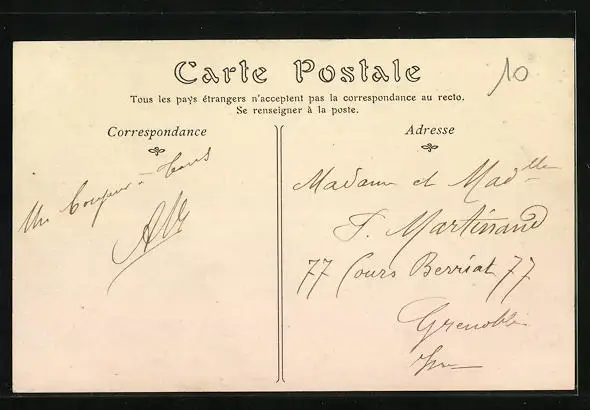 Carte Postale
10
Tous les pays étrangers n'acceptent pas la correspondance au recto.
Se renseigner à la poste.
Correspondance
Un bonjour à tous
Adresse
Madame et Mad^elle
F. Martinand
77 Cours Berriat 77
Grenoble